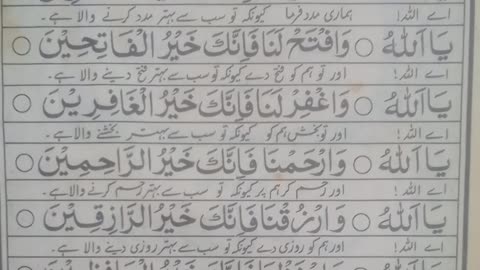 اے اللہ! ہماری مدد فرما کیونکہ تو سب سے بہتر مدد کرنے والا ہے۔
يَا اَللهُ ○ وَافْتَحْ لَنَا فَاِنَّكَ خَيْرُ الْفَاتِحِيْنَ ○
اے اللہ! اور تو ہم کو فتح دے کیونکہ تو سب سے بہتر فتح دینے والا ہے۔
يَا اَللهُ ○ وَاغْفِرْ لَنَا فَاِنَّكَ خَيْرُ الْغَافِرِيْنَ ○
اے اللہ! اور تو بخش ہم کو کیونکہ تو سب سے بہتر بخشنے والا ہے۔
يَا اَللهُ ○ وَارْحَمْنَا فَاِنَّكَ خَيْرُ الرَّاحِمِيْنَ ○
اے اللہ! اور رحم کر ہم پر کیونکہ تو سب سے بہتر رحم کرنے والا ہے۔
يَا اَللهُ ○ وَارْزُقْنَا فَاِنَّكَ خَيْرُ الرَّازِقِيْنَ ○
اے اللہ! اور ہم کو روزی دے کیونکہ تو سب سے بہتر روزی دینے والا ہے۔
يَا اَللهُ